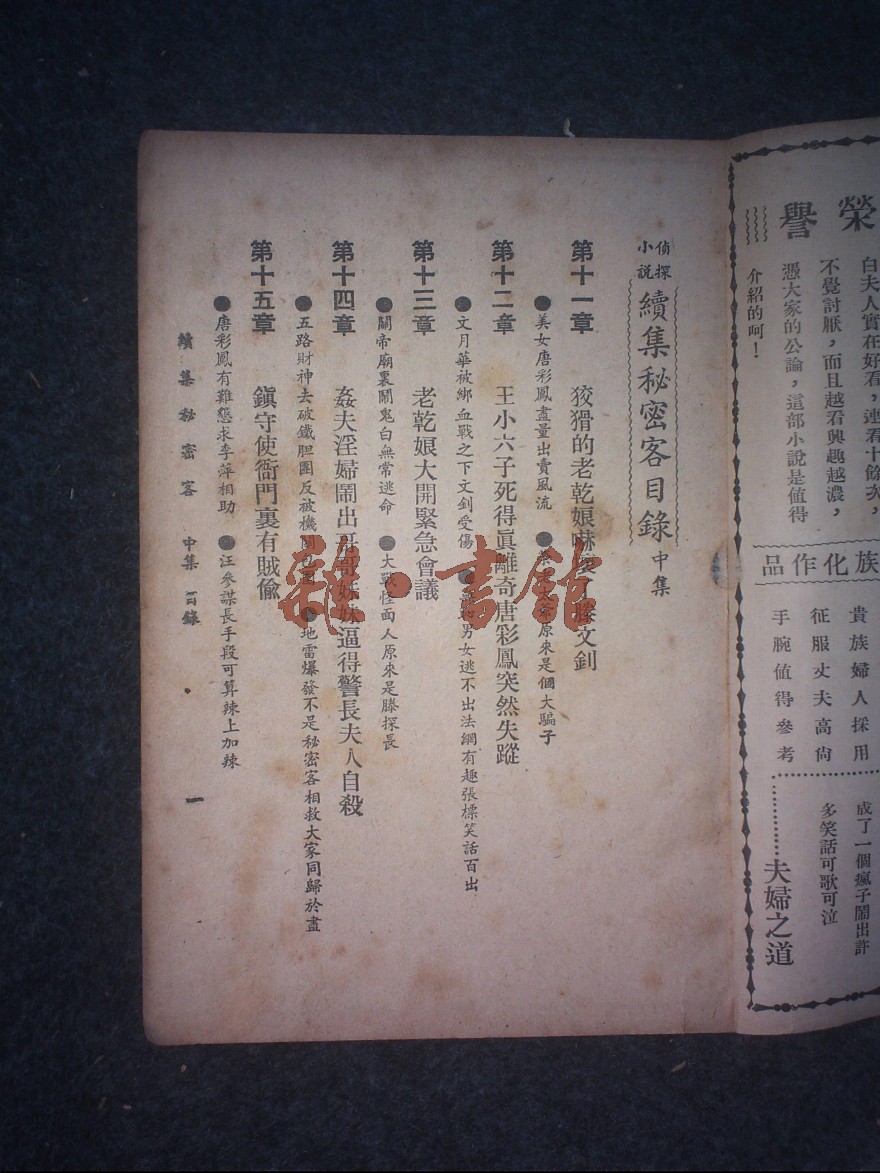 榮譽
白夫人實在好看，連看十餘次，
不覺討厭，而且越看興趣越濃，
憑大家的公論，這部小說是值得
介紹的呵！
族化作品
貴族婦人採用
征服丈夫高尙
手腕值得參考
成了一個瘋子鬧出許
多笑話可歌可泣
夫婦之道
偵探小說 續集秘密客目錄 中集
第十一章 狡猾的老乾娘嚇 了滕文釗
●美女唐彩鳳盡量出賣風流 ● 原來是個大騙子
第十二章 王小六子死得眞離奇唐彩鳳突然失蹤
●文月華被綁血戰之下文釗受傷 ● 男女逃不出法綱有趣張標笑話百出
第十三章 老乾娘大開緊急會議
●關帝廟裏鬧鬼白無常逃命 ●大戰怪面人原來是滕探長
第十四章 姦夫淫婦鬧出哥哥妹妹逼得警長夫人自殺
●五路財神去破鐵胆團反被機關 ●地雷爆發不是秘密客相救大家同歸於盡
第十五章 鎭守使衙門裏有賊偷
●唐彩鳳有難懇求李萍相助 ●汪參謀長手段可算辣上加辣
續集秘密客 中集 目錄 一
雜·書館